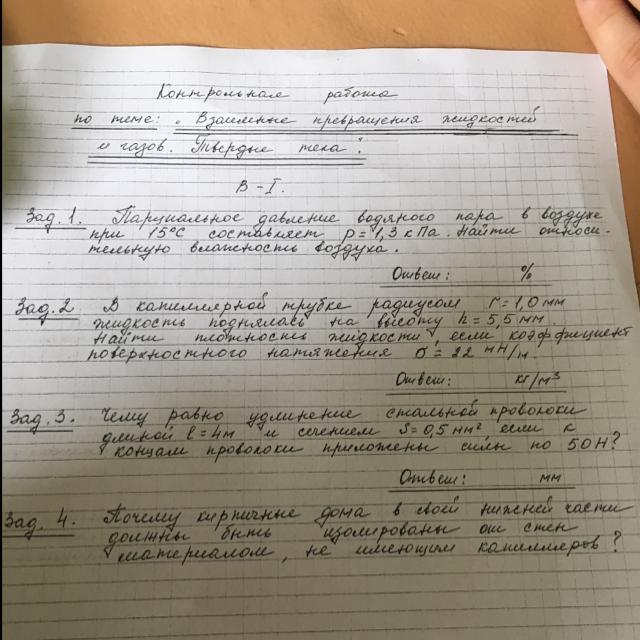 Контрольная работа
по теме: „Взаимные превращения жидкостей
и газов. Твердые тела".
В-I.
Зад. 1. Парциальное давление водяного пара в воздухе
при 15°С составляет p=1,3 кПа. Найти относи-
тельную влажность воздуха.
Ответ: %
Зад. 2 В капиллярной трубке радиусом r=1,0 мм
жидкость поднялась на высоту h=5,5 мм
Найти плотность жидкости, если коэффициент
поверхностного натяжения σ=22 мН/м.
Ответ: кг/м³
Зад. 3. Чему равно удлинение стальной проволоки
длиной l=4м и сечением S=0,5 мм² если к
концам проволоки приложены силы по 50Н?
Ответ: мм
Зад. 4. Почему кирпичные дома в свой нижней части
должны быть изолированы от стен
материалом, не имеющим капилляров?